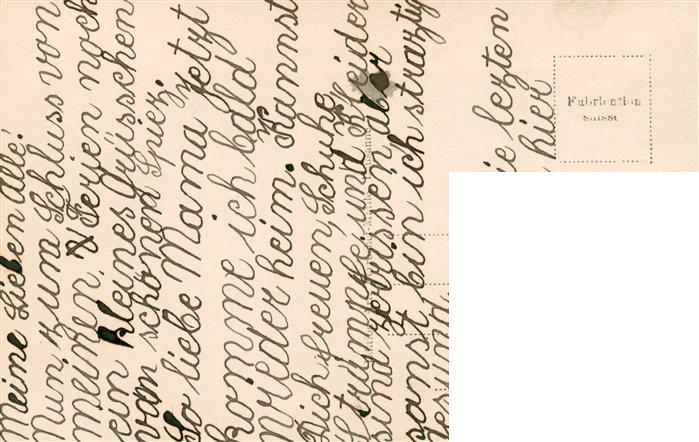 Meine Lieben Alle!
Nun zum Schluss von
meinen Ferien noch
ein kleines Grüsschen
vom schönen Spiez.
So liebe Mama jetzt
komme ich bald
wieder heim. Kannst
Dich freuen, Schuhe
Strümpfe, und Kleider
sind zerissen, aber
sonst bin ich straztig
gesund.
die lezten
hier
Fabrication
suisse